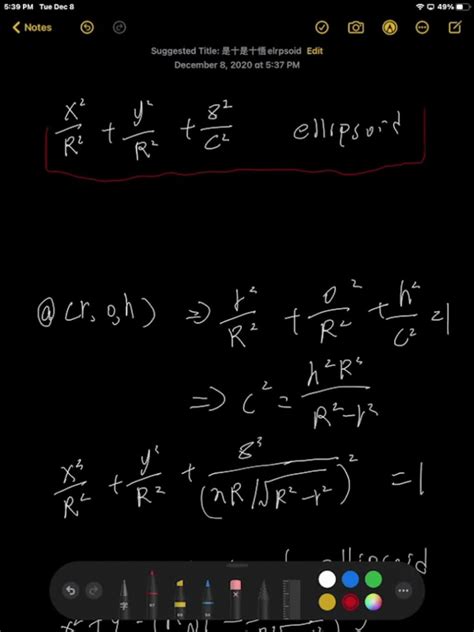 5:39 PM Tue Dec 8 49%
Notes
Suggested Title: 是十是十悟 elrpsoid Edit
December 8, 2020 at 5:37 PM
x²/R² + y²/R² + 8²/C² ellipsoid
@ (r, 0, h) => r²/R² + 0²/R² + h²/C² = 1
=> C² = h²R³/R²-r²
x³/R² + y²/R² + 8³/(nR/√R²-r²)² = 1
ellipsoid